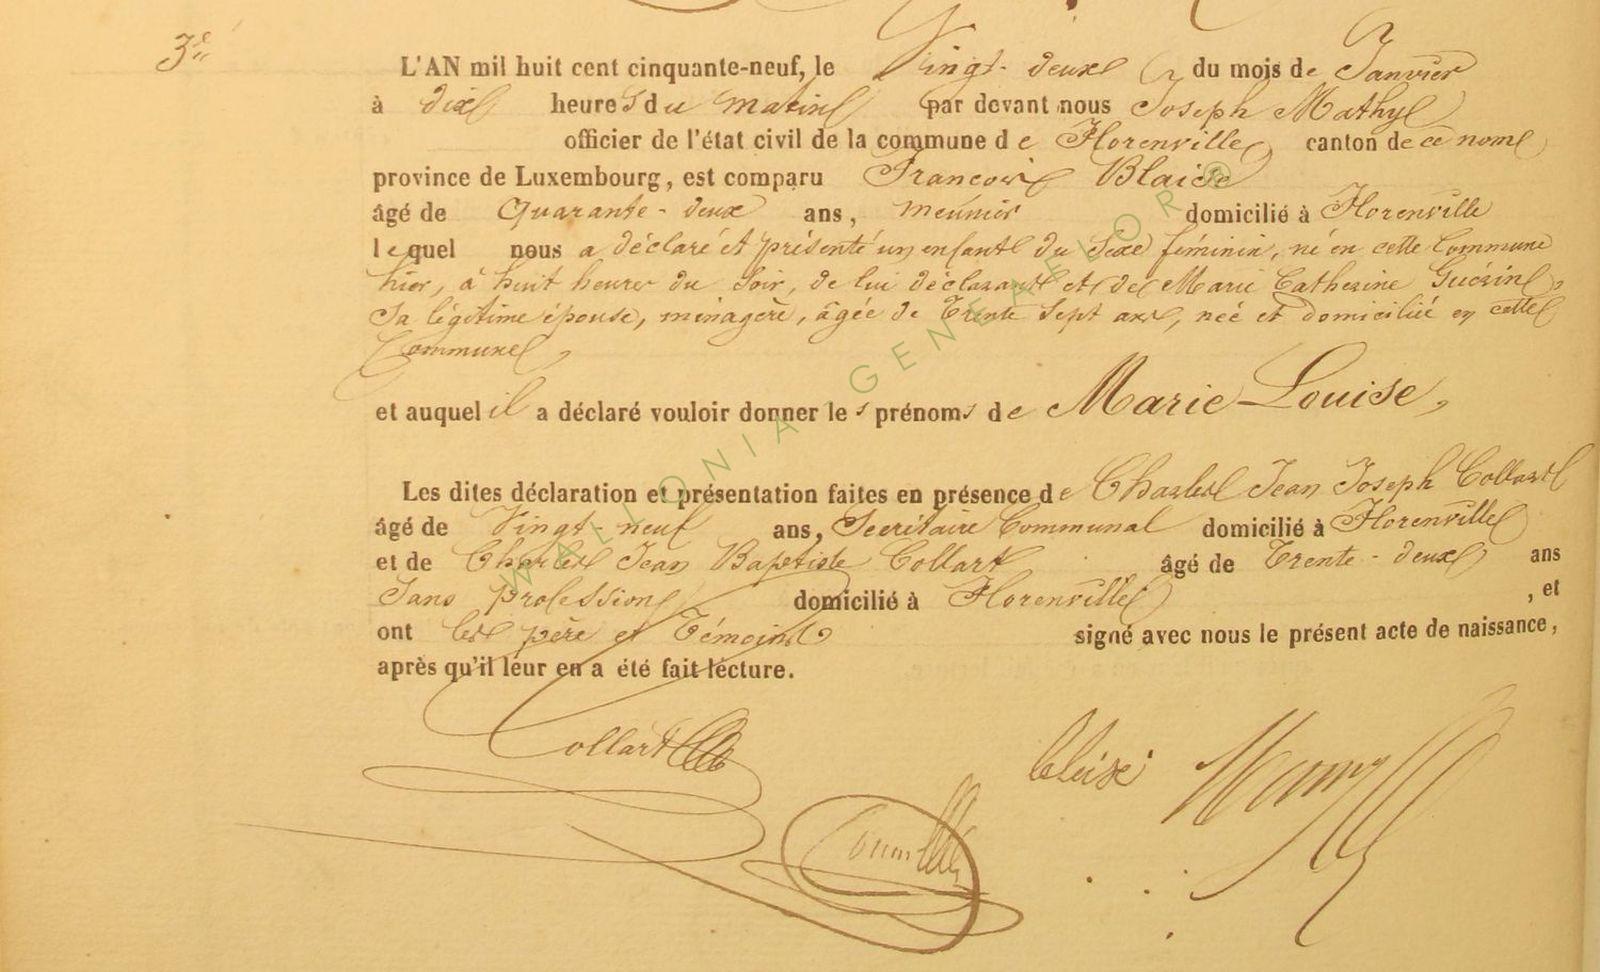 3e
L'AN mil huit cent cinquante-neuf, le Vingt-deux du mois de Janvier
à dix heures du matin par devant nous Joseph Mathy
officier de l'état civil de la commune de Florenville canton de ce nom
province de Luxembourg, est comparu François Blaise
âgé de Quarante-deux ans, meunier domicilié à Florenville
lequel nous a déclaré et présenté un enfant du sexe féminin, né en cette Commune
hier, à huit heures du soir, de lui déclarant et de Marie Catherine Guérin,
sa légitime épouse, ménagère, âgée de Trente sept ans, née et domiciliée en cette
Commune,
et auquel il a déclaré vouloir donner les prénoms de Marie-Louise,
Les dites déclaration et présentation faites en présence de Charles Jean Joseph Collart
âgé de Vingt-neuf ans, Secrétaire Communal domicilié à Florenville
et de Charles Jean Baptiste Collart âgé de Trente-deux ans
Sans profession domicilié à Florenville, et
ont les père et Témoins signé avec nous le présent acte de naissance,
après qu'il leur en a été fait lecture.
Collart
Bleise
WALLONIA - GENEAFLOR ®